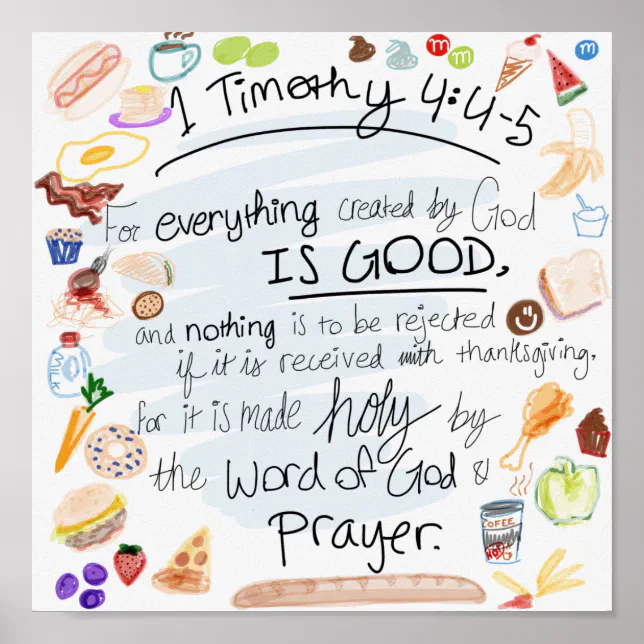 1 Timothy 4:4-5
m
m
m
For everything created by God
IS GOOD,
and nothing is to be rejected
if it is received with thanksgiving,
for it is made holy by
the Word of God &
Prayer.
MILK
COFEE
HOT